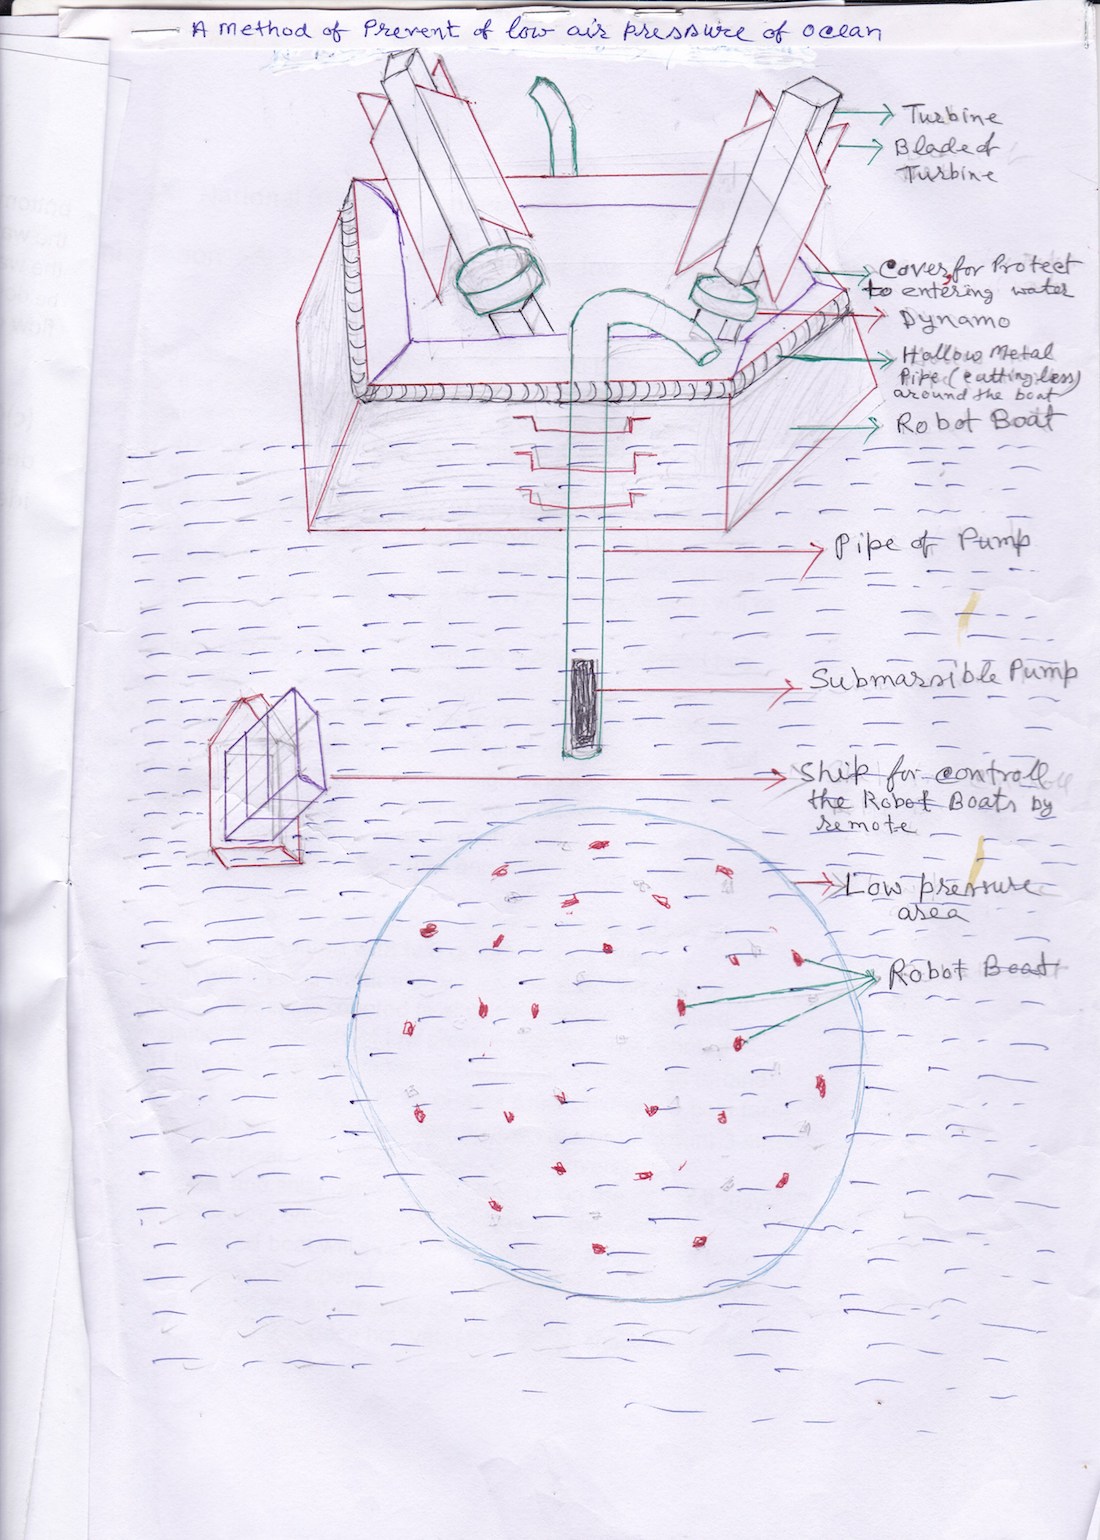 A Method of Prevent of low air pressure of ocean
Turbine
Blade of
Turbine
Cover for Protect
to entering water
Dynamo
Hollow Metal
Pipe (cuttingless)
around the boat
Robot Boat
Pipe of Pump
Submassible Pump
Ship for controll
the Robot Boats by
remote
Low pressure
area
Robot Boat